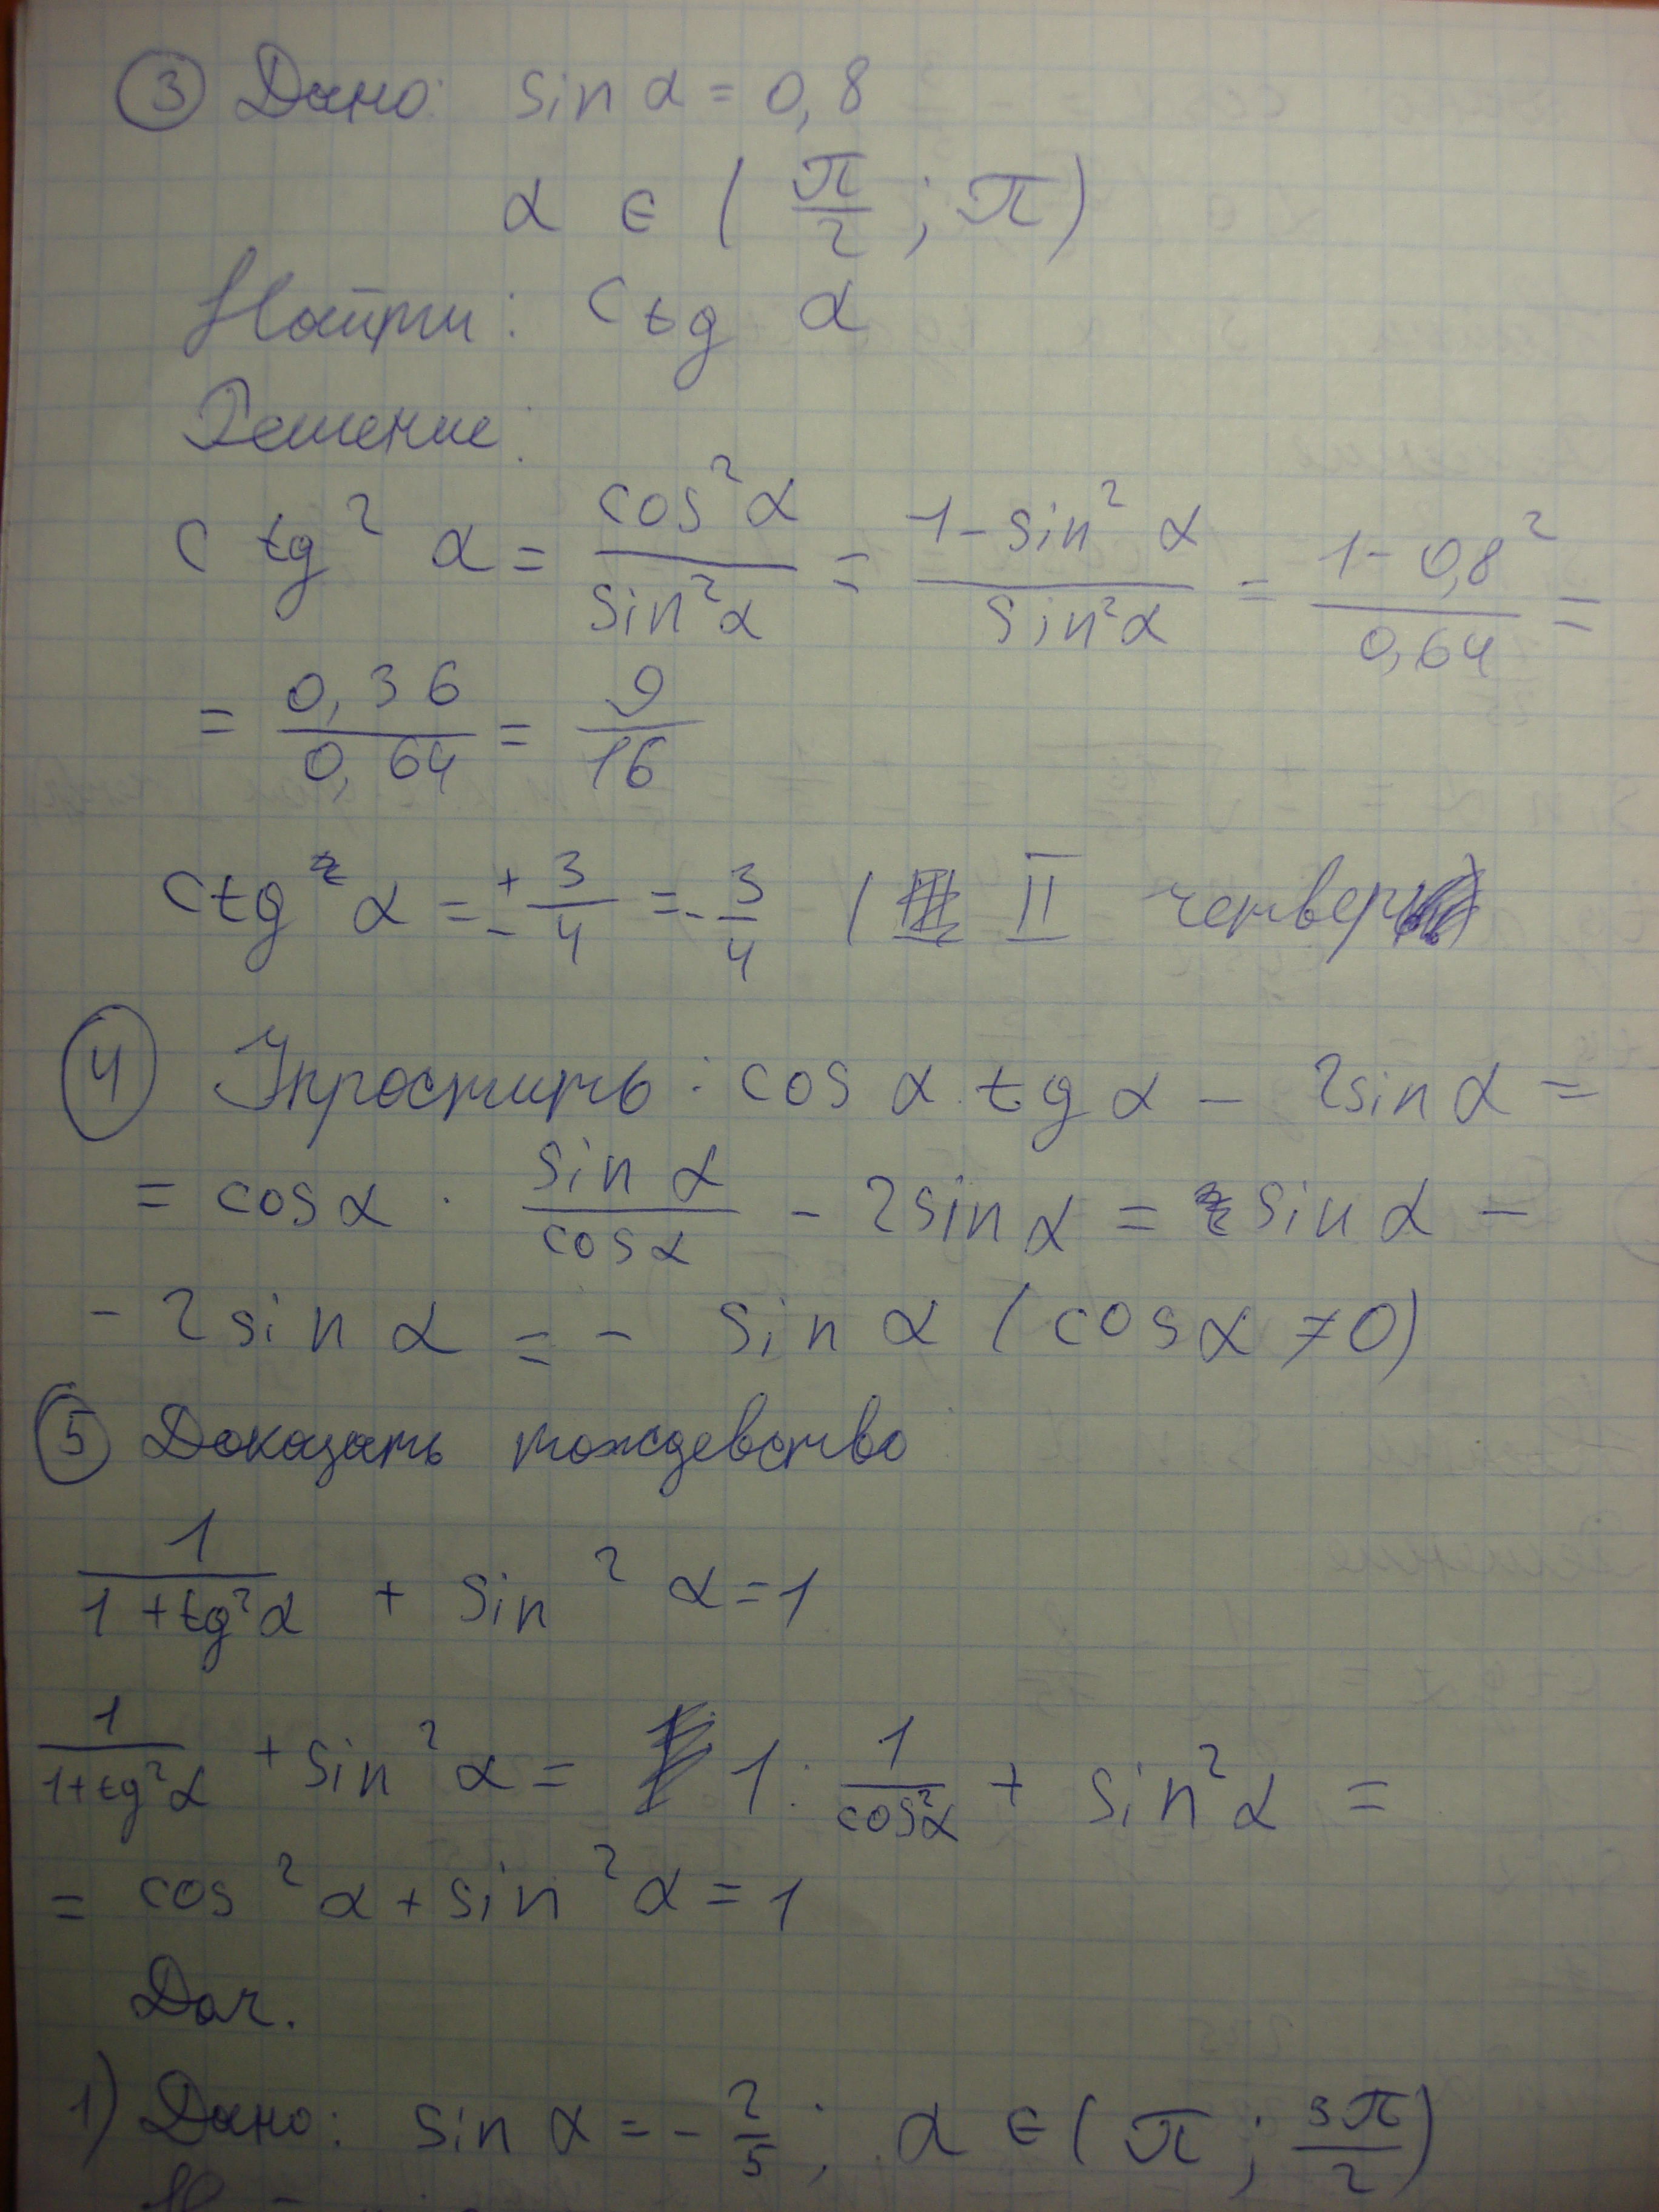 ③ Дано: sin α = 0,8
α ∈ (π/2; π)
Найти: ctg α
Решение:
ctg² α = cos²α/sin²α = 1 - sin² α/sin²α = 1 - 0,8²/0,64 =
= 0,36/0,64 = 9/16
ctg α = ± 3/4 = - 3/4 ( II четверть)
④ Упростить: cos α tg α - 2sin α =
= cos α · sin α/cos α - 2sin α = sin α -
- 2sin α = - sin α (cos α ≠ 0)
⑤ Доказать тождевство
1/1 + tg²α + sin² α = 1
1/1+tg²α + sin² α = 1 : 1/cos²α + sin² α =
= cos² α + sin² α = 1
1) Дано: sin α = - 2/5; α ∈ (π; 3π/2)